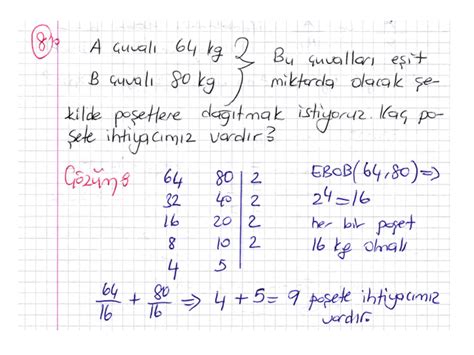 8)
A çuvalı 64 kg } Bu çuvalları eşit
B çuvalı 80 kg } miktarda olacak şe-
kilde poşetlere dağıtmak istiyoruz. Kaç po-
şete ihtiyacımız vardır?
Çözüm:
64 80 | 2
32 40 | 2
16 20 | 2
8 10 | 2
4 5
EBOB(64,80) ⇒
2⁴ = 16
her bir poşet
16 kg olmalı
64/16 + 80/16 ⇒ 4 + 5 = 9 poşete ihtiyacımız
vardır.